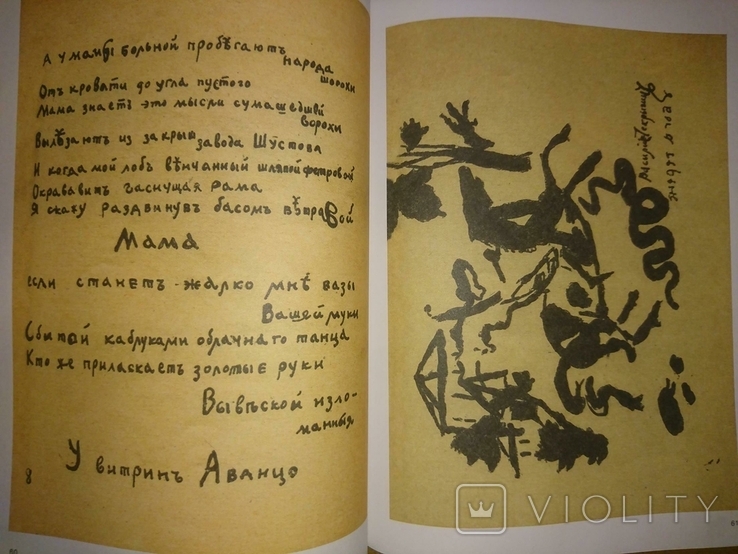 А у мамы больной пробѣгаютъ народа
шорохи
Отъ кровати до угла пустого
Мама знаетъ это мысли сумашедшей
ворохи
Вылѣзаютъ из за крыш завода Шустова
И когда мой лобъ вѣнчанный шляпой фетровой
Окрававитъ гаснущая рама
Я скажу раздвинувъ басомъ вѣтра вой
Мама
если станетъ жалко мнѣ вазы
Вашей муки
Сбитой каблуками облачнаго танца
Кто же приласкаетъ золотые руки
Вывѣской изло-
манныя
У витринъ Аванцо
8
60
Василій Чекрыгинъ
61
VIOLITY